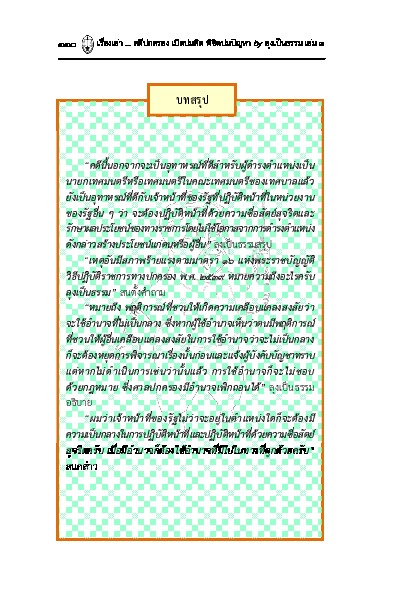 เรื่องเล่า ... คดีปกครอง เปิดปมคิด พิชิตปมปัญหา by ลุงเป็นธรรม เล่ม ๓
บทสรุป
“คดีนี้นอกจากจะเป็นอุทาหรณ์ที่ดีสำหรับผู้ดำรงตำแหน่งเป็น
นายกเทศมนตรีหรือเทศมนตรีในคณะเทศมนตรีของเทศบาลแล้ว
ยังเป็นอุทาหรณ์ที่ดีกับเจ้าหน้าที่ของรัฐที่ปฏิบัติหน้าที่ในหน่วยงาน
ของรัฐอื่น ๆ ว่า จะต้องปฏิบัติหน้าที่ด้วยความซื่อสัตย์สุจริตและ
รักษาผลประโยชน์ของทางราชการโดยไม่ใช้โอกาสจากการดำรงตำแหน่ง
ดังกล่าวสร้างประโยชน์แก่ตนหรือผู้อื่น” ลุงเป็นธรรมสรุป
“เหตุอันมีสภาพร้ายแรงตามมาตรา ๑๖ แห่งพระราชบัญญัติ
วิธีปฏิบัติราชการทางปกครอง พ.ศ. ๒๕๓๙ หมายความถึงอะไรครับ
ลุงเป็นธรรม” สนตั้งคำถาม
“หมายถึง พฤติการณ์ที่ชวนให้เกิดความเคลือบแคลงสงสัยว่า
จะใช้อำนาจที่ไม่เป็นกลาง ซึ่งหากผู้ใช้อำนาจเห็นว่าตนมีพฤติการณ์
ที่ชวนให้ผู้อื่นเคลือบแคลงสงสัยในการใช้อำนาจว่าจะไม่เป็นกลาง
ก็จะต้องหยุดการพิจารณาเรื่องนั้นก่อนและแจ้งผู้บังคับบัญชาทราบ
แต่หากไม่ดำเนินการเช่นว่านั้นแล้ว การใช้อำนาจก็จะไม่ชอบ
ด้วยกฎหมาย ซึ่งศาลปกครองมีอำนาจเพิกถอนได้” ลุงเป็นธรรม
อธิบาย
“ผมว่าเจ้าหน้าที่ของรัฐไม่ว่าจะอยู่ในตำแหน่งใดก็จะต้องมี
ความเป็นกลางในการปฏิบัติหน้าที่และปฏิบัติหน้าที่ด้วยความซื่อสัตย์
สุจริตครับ เมื่อมีอำนาจก็ต้องใช้อำนาจที่มีไปในทางที่ถูกด้วยครับ”
สนกล่าว